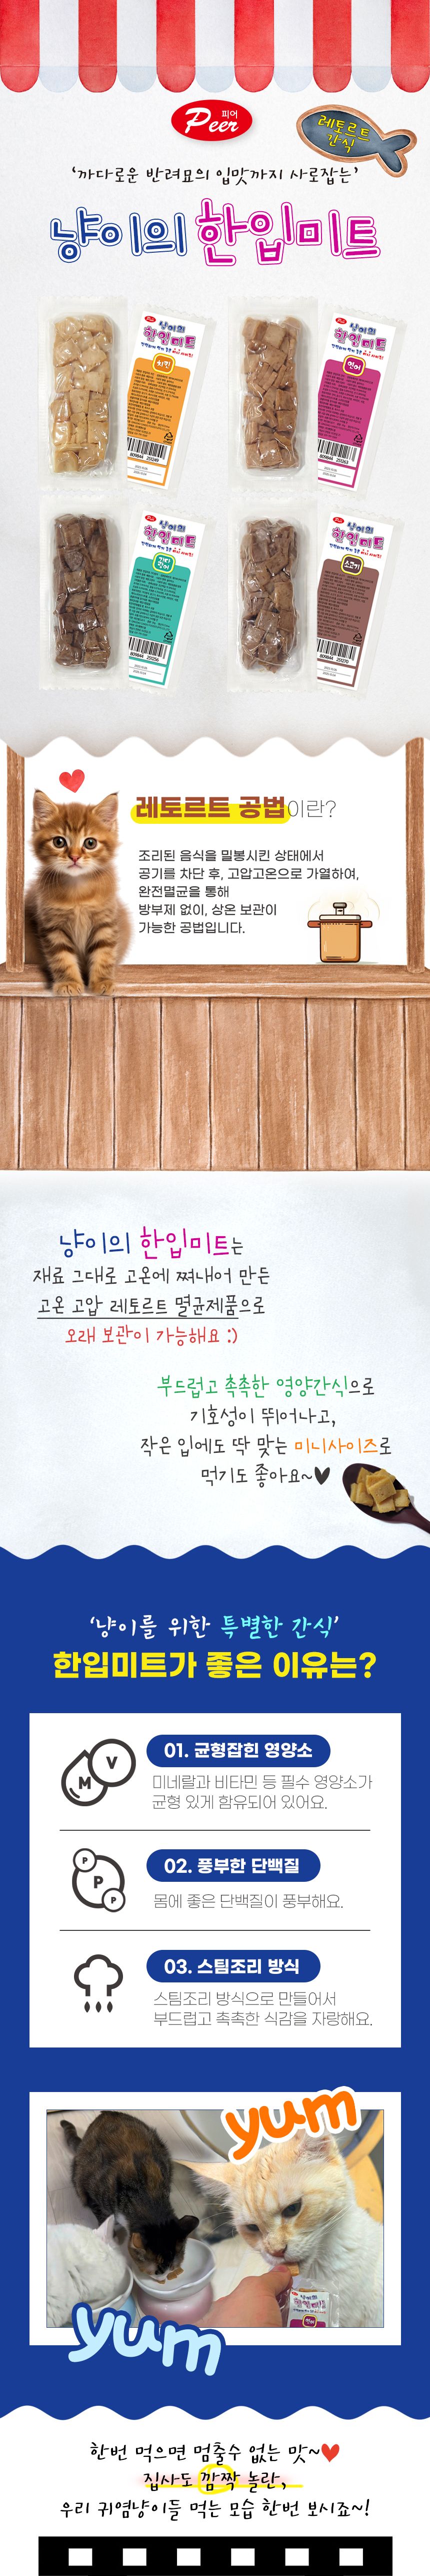 피어
Peer
레토르트
간식
‘까다로운 반려묘의 입맛까지 사로잡는’
냥이의 한입미트
Peer
냥이의
한입미트
치킨
Peer
냥이의
한입미트
연어
Peer
냥이의
한입미트
Peer
냥이의
한입미트
소고기
레토르트 공법이란?
조리된 음식을 밀봉시킨 상태에서
공기를 차단 후, 고압고온으로 가열하여,
완전멸균을 통해
방부제 없이, 상온 보관이
가능한 공법입니다.
냥이의 한입미트는
재료 그대로 고온에 쪄내어 만든
고온 고압 레토르트 멸균제품으로
오래 보관이 가능해요 :)
부드럽고 촉촉한 영양간식으로
기호성이 뛰어나고,
작은 입에도 딱 맞는 미니사이즈로
먹기도 좋아요~♥
‘냥이를 위한 특별한 간식’
한입미트가 좋은 이유는?
M V
01. 균형잡힌 영양소
미네랄과 비타민 등 필수 영양소가
균형 있게 함유되어 있어요.
P P P
02. 풍부한 단백질
몸에 좋은 단백질이 풍부해요.
03. 스팀조리 방식
스팀조리 방식으로 만들어서
부드럽고 촉촉한 식감을 자랑해요.
yum
냥이의
한입미트
연어
yum
한번 먹으면 멈출수 없는 맛~♥
집사도 깜짝 놀란,
우리 귀염냥이들 먹는 모습 한번 보시죠~!